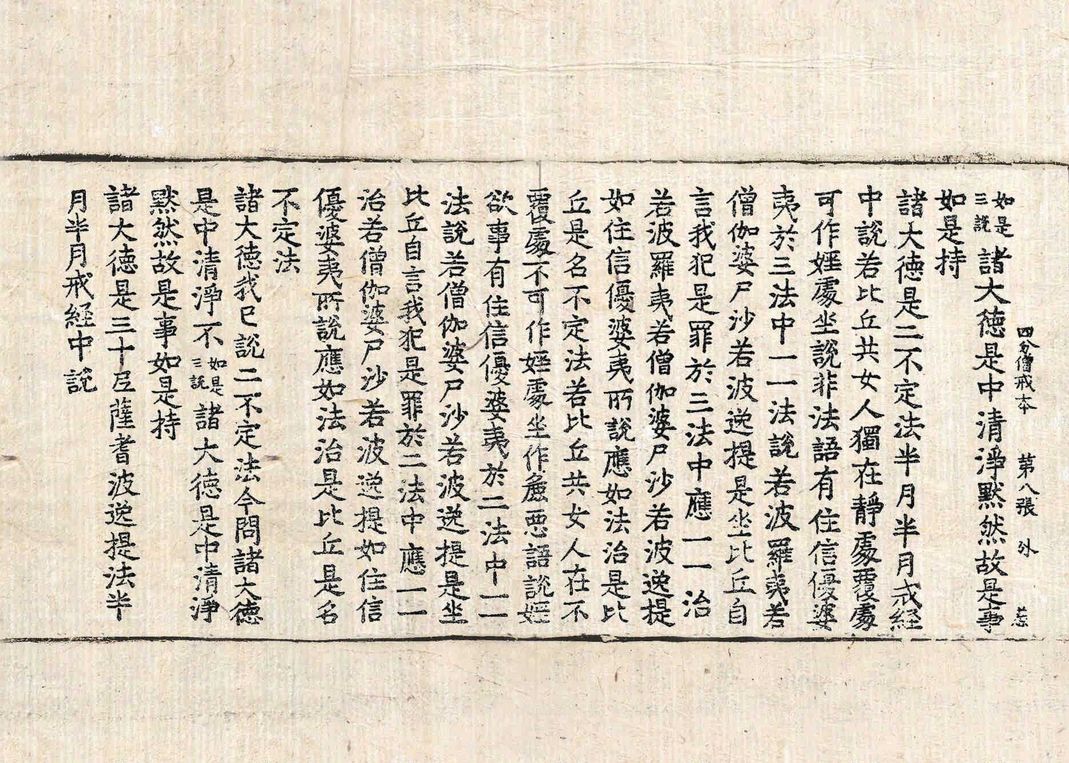 四分僧戒本　第八張　外
如是三說諸大德是中清淨默然故是事
如是持
諸大德是二不定法半月半月戒経
中說若比丘共女人獨在靜處覆處
可作婬處坐說非法語有住信優婆
夷於三法中一一法說若波羅夷若
僧伽婆尸沙若波逸提是坐比丘自
言我犯是罪於三法中應一一治
若波羅夷若僧伽婆尸沙若波逸提
如住信優婆夷所說應如法治是比
丘是名不定法若比丘共女人在不
覆處不可作婬處坐作麁惡語說婬
欲事有住信優婆夷於二法中一一
法說若僧伽婆尸沙若波逸提是坐
比丘自言我犯是罪於二法中應一一
治若僧伽婆尸沙若波逸提如住信
優婆夷所說應如法治是比丘是名
不定法
諸大德我已說二不定法今問諸大德
是中清淨不如是三說諸大德是中清淨
默然故是事如是持
諸大德是三十尼薩耆波逸提法半
月半月戒經中說